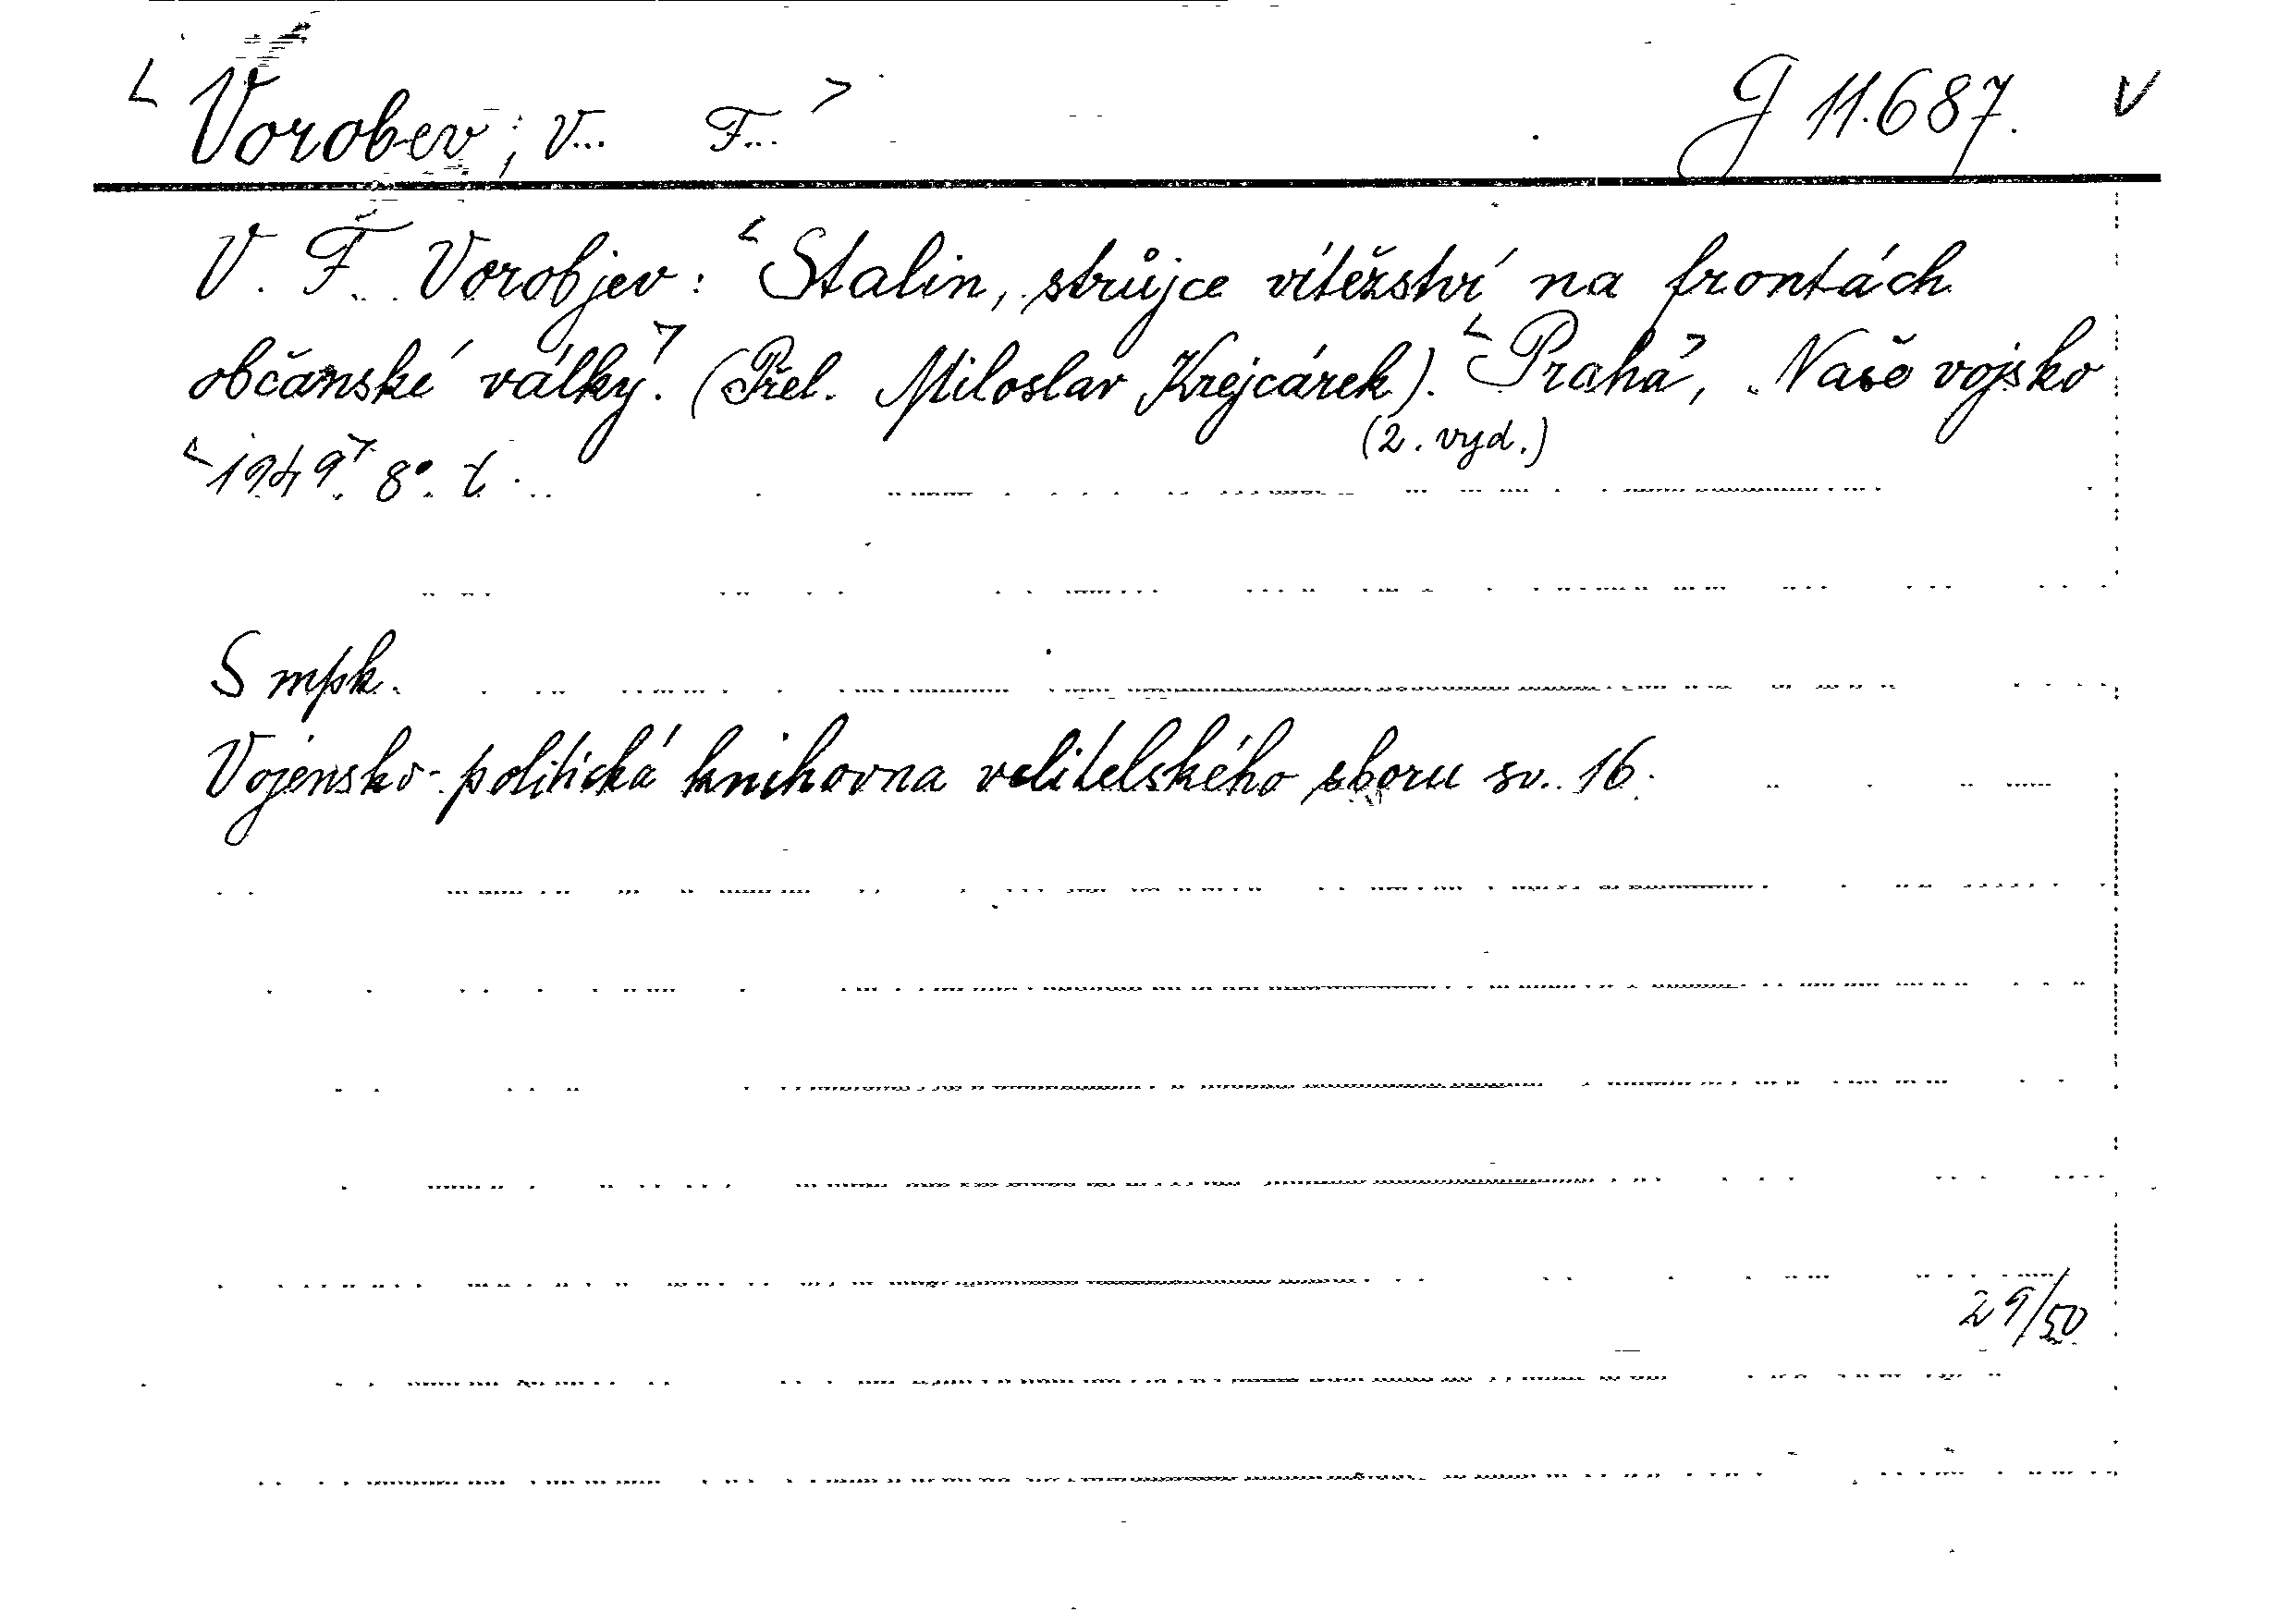 <Vorobev, V... F...> G 11.687. V
V. F. Vorobjev: <Stalin, strůjce vítězství na frontách
občanské války>. (Přel. Miloslav Krejcárek). <Praha>, Naše vojsko
(2. vyd.)
<1949>. 8°.
S mpk.
Vojensko-politická knihovna velitelského sboru sv. 16.
29/50